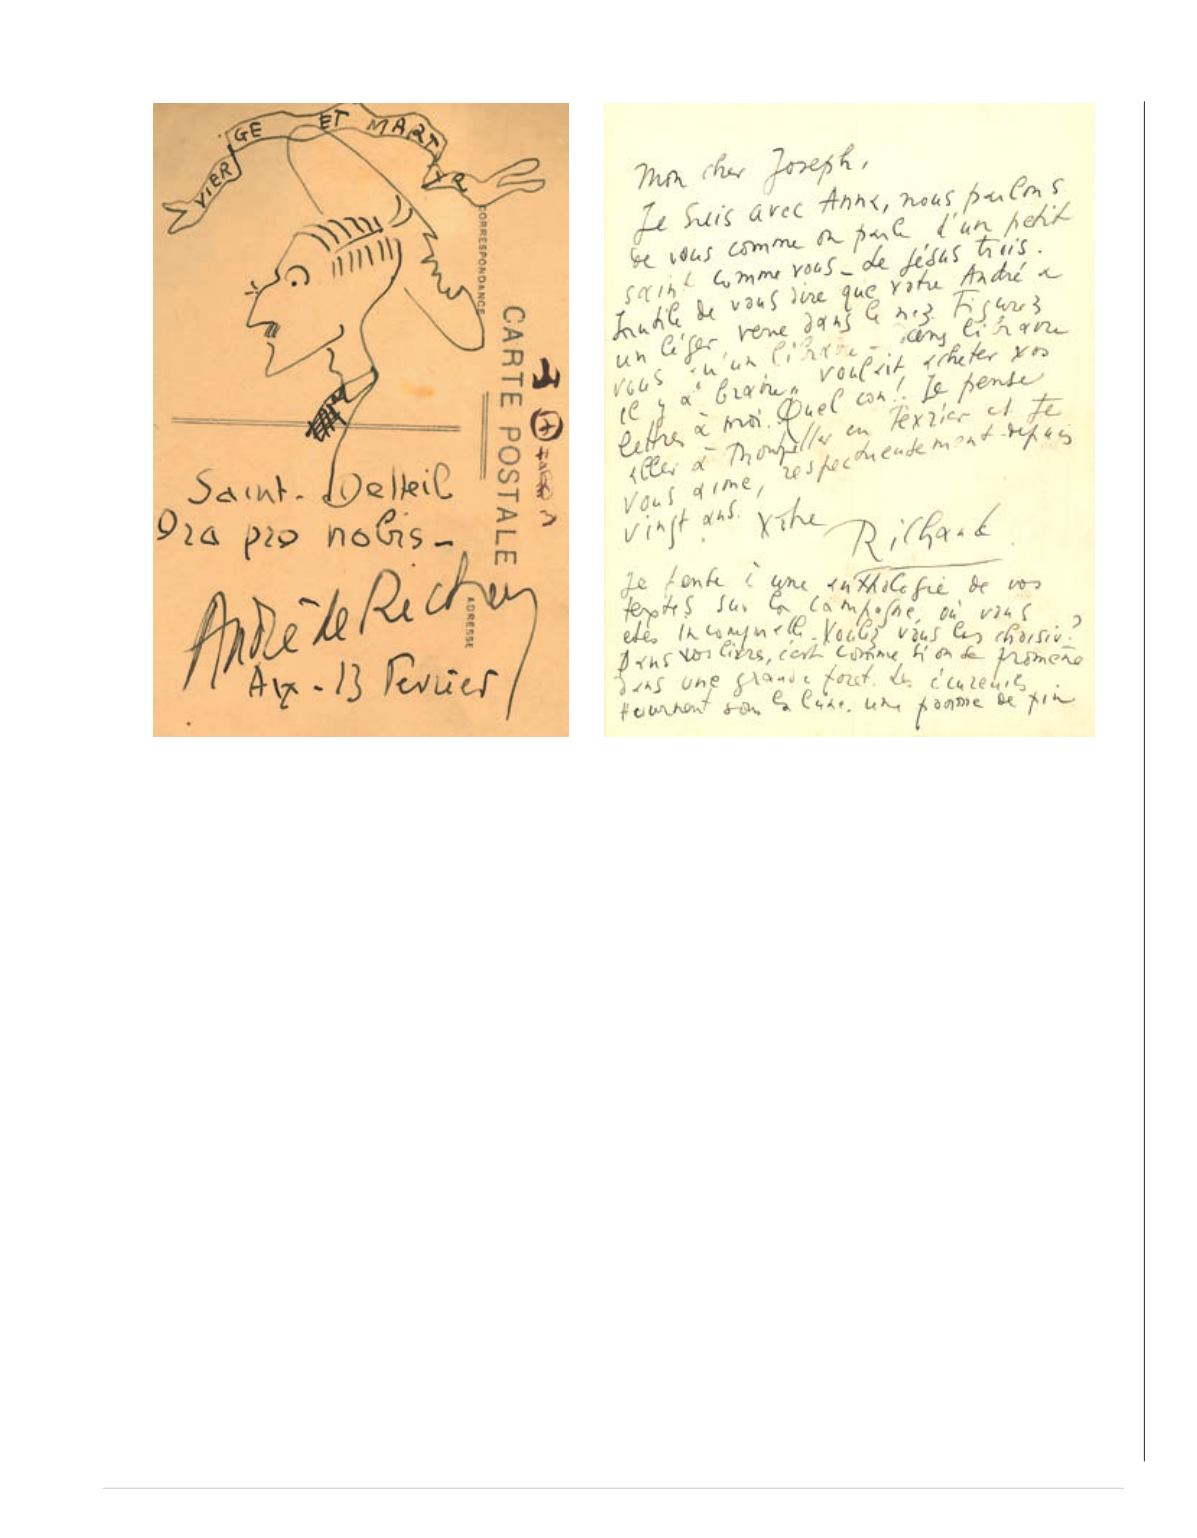 VIERGE ET MARTYR
CORRESPONDANCE
CARTE POSTALE
Saint-Delteil
Ora pro nobis -
ADRESSE
André de Richaud
Aix - 13 Fevrier
Mon cher Joseph,
Je suis avec Anne, nous parlons
de vous comme on parle d'un petit
saint comme vous - de Jésus trois.
Inutile de vous dire que votre André a
un léger verre dans le nez. Figurez
vous qu'un libraire -
il y a vouloit acheter vos
lettres à moi. Quel con! Je pense
aller à Montpellier en Fevrier et Je
vous aime, respectueusement depuis
vingt ans. Votre
Richaud
Je pense à une anthologie de vos
textes sur la campagne, où vous
etes Voulez vous les choisir?
Dans vos livres, c'est comme si on se promene
dans une grande foret. Les écureuils
tournent sous la lune. une pomme de pin